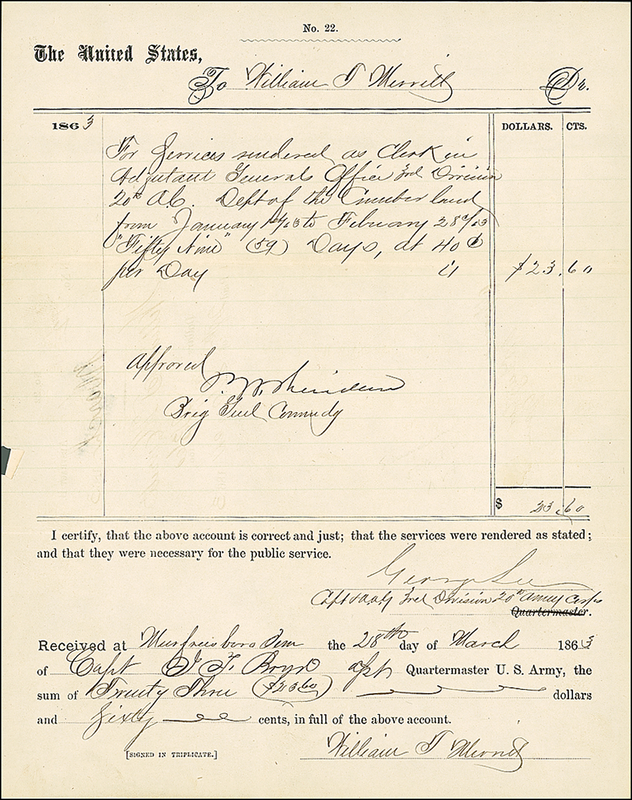 No. 22.
The United States,
To William T Merritt Dr.
1863
DOLLARS. CTS.
For Services rendered as Clerk in
Adjutant Generals Office 3rd Division
20th A.C. Dept of the Cumberland
from January 1st/63 to February 28th/63
"Fifty Nine" (59) Days, at 40 ¢
per Day is $23.60
Approved
P. H. Sheridan
Brig Genl Commdg
$ 23.60
I certify, that the above account is correct and just; that the services were rendered as stated;
and that they were necessary for the public service.
George Lee
Capt &amp; A.A.G. 3rd Division 20th Army Corps
Quartermaster.
Received at Murfreesboro Tenn the 28th day of March 1863
of Capt Quartermaster U. S. Army, the
sum of Twenty Three ($23.60) dollars
and Sixty cents, in full of the above account.
William T Merritt
[SIGNED IN TRIPLICATE.]